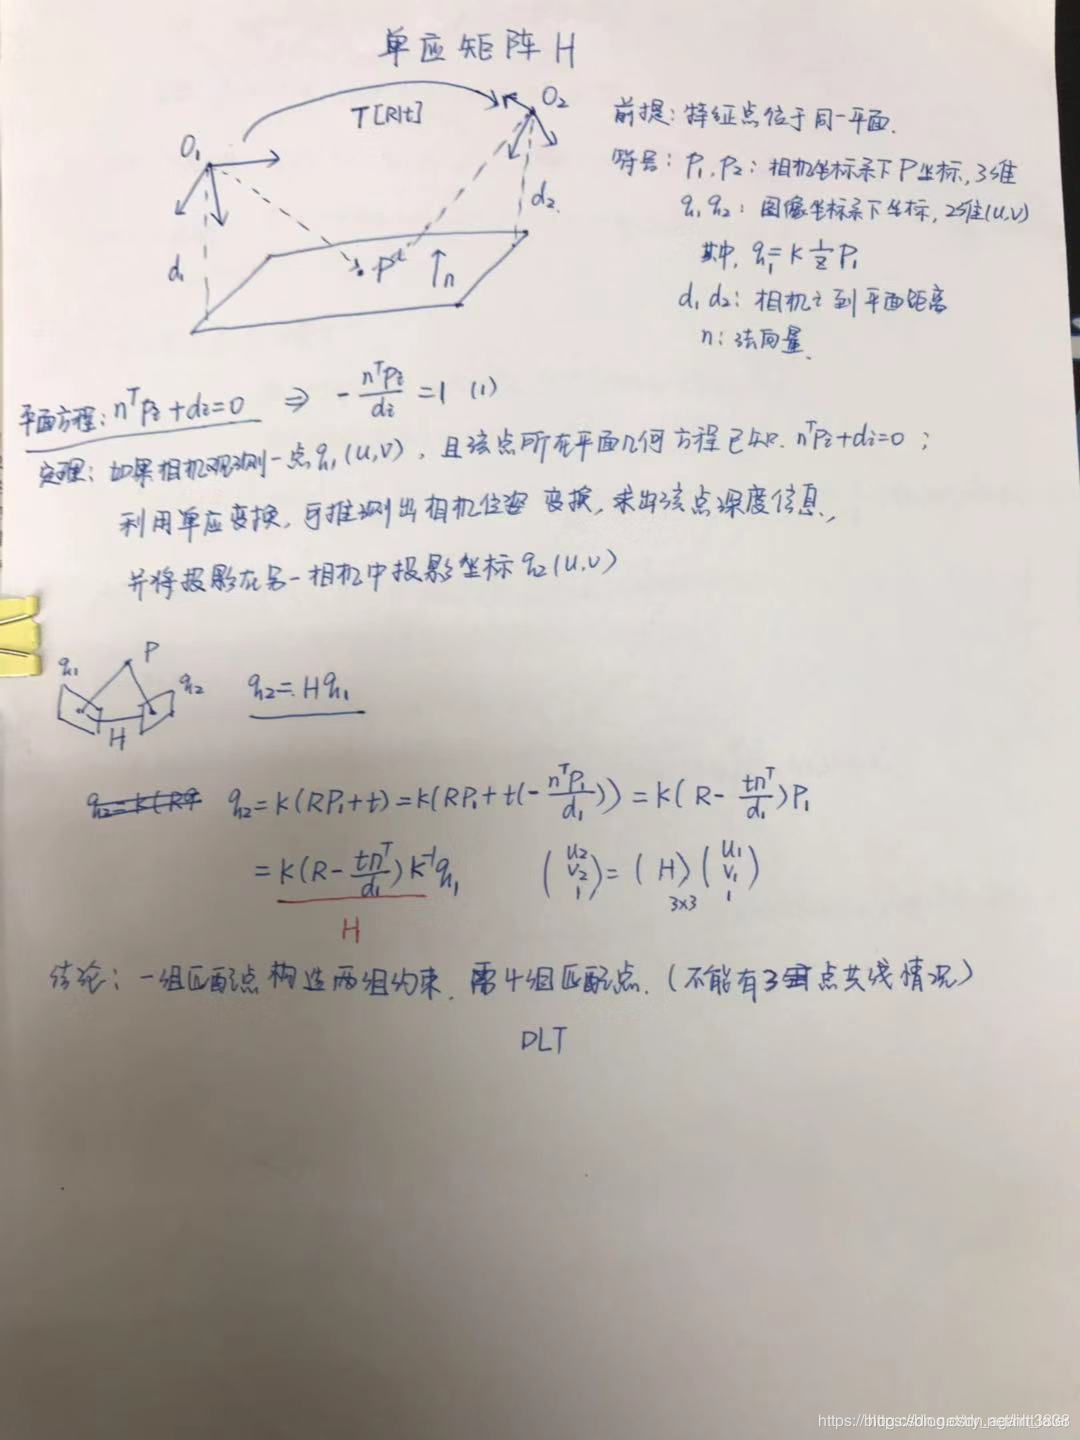 单应矩阵 H
T[R|t]
O₁
O₂
d₁
d₂
P
n
前提：特征点位于同一平面.
符号：P₁, P₂：相机坐标系下P坐标, 3维
q₁ q₂：图像坐标系下坐标, 2维(u,v)
其中, q₁ = K 1/z P₁
d₁ d₂：相机i到平面距离
n：法向量.
平面方程：nᵀPᵢ + dᵢ = 0 ⇒ - nᵀPᵢ/dᵢ = 1 (1)
定理：如果相机观测到一点q₁(u,v), 且该点所在平面几何方程已知. nᵀPᵢ + dᵢ = 0；
利用单应变换, 可推测出相机位姿变换, 求出该点深度信息.,
并将投影在另一相机中投影坐标q₂(u,v)
q₁ P q₂
H
q₂ = Hq₁
q₂ = K(RP₁+t) = K(RP₁ + t(- nᵀP₁/d₁)) = K(R - tnᵀ/d₁)P₁
= K(R - tnᵀ/d₁)K⁻¹q₁
H
(u₂ v₂ 1) = (H) (u₁ v₁ 1)
3×3
结论：一组匹配点构造两组约束. 需4组匹配点. (不能有3点共线情况)
DLT